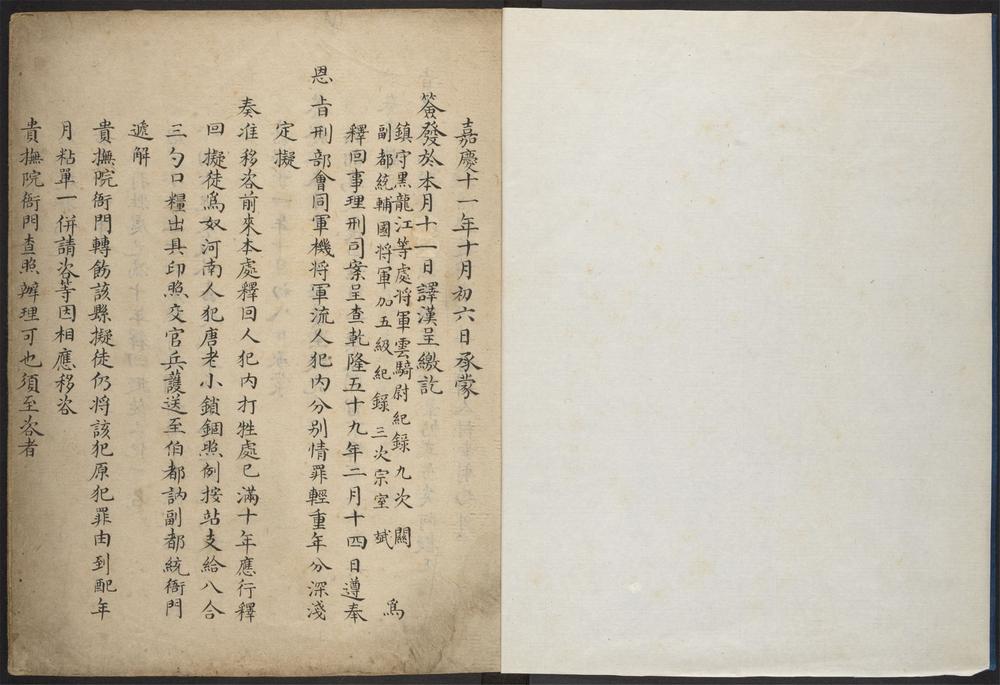 嘉慶十一年十月初六日承蒙
簽發於本月十一日譯漢呈繳訖
鎮守黑龍江等處將軍雲騎尉紀録九次 關
副都統輔國將軍加五級紀録三次宗室 斌 為
釋回事理刑司案呈查乾隆五十九年二月十四日遵奉
恩旨刑部會同軍機將軍流人犯內分別情罪輕重年分深淺
定擬
奏准移咨前來本處釋回人犯內打牲處已滿十年應行釋
回擬徒為奴河南人犯唐老小鎖錮照例按站支給八合
三勺口糧出具印照交官兵護送至伯都訥副都統衙門
遞解
貴撫院衙門轉飭該縣擬徒仍將該犯原犯罪由到配年
月粘單一併請咨等因相應移咨
貴撫院衙門查照辦理可也須至咨者